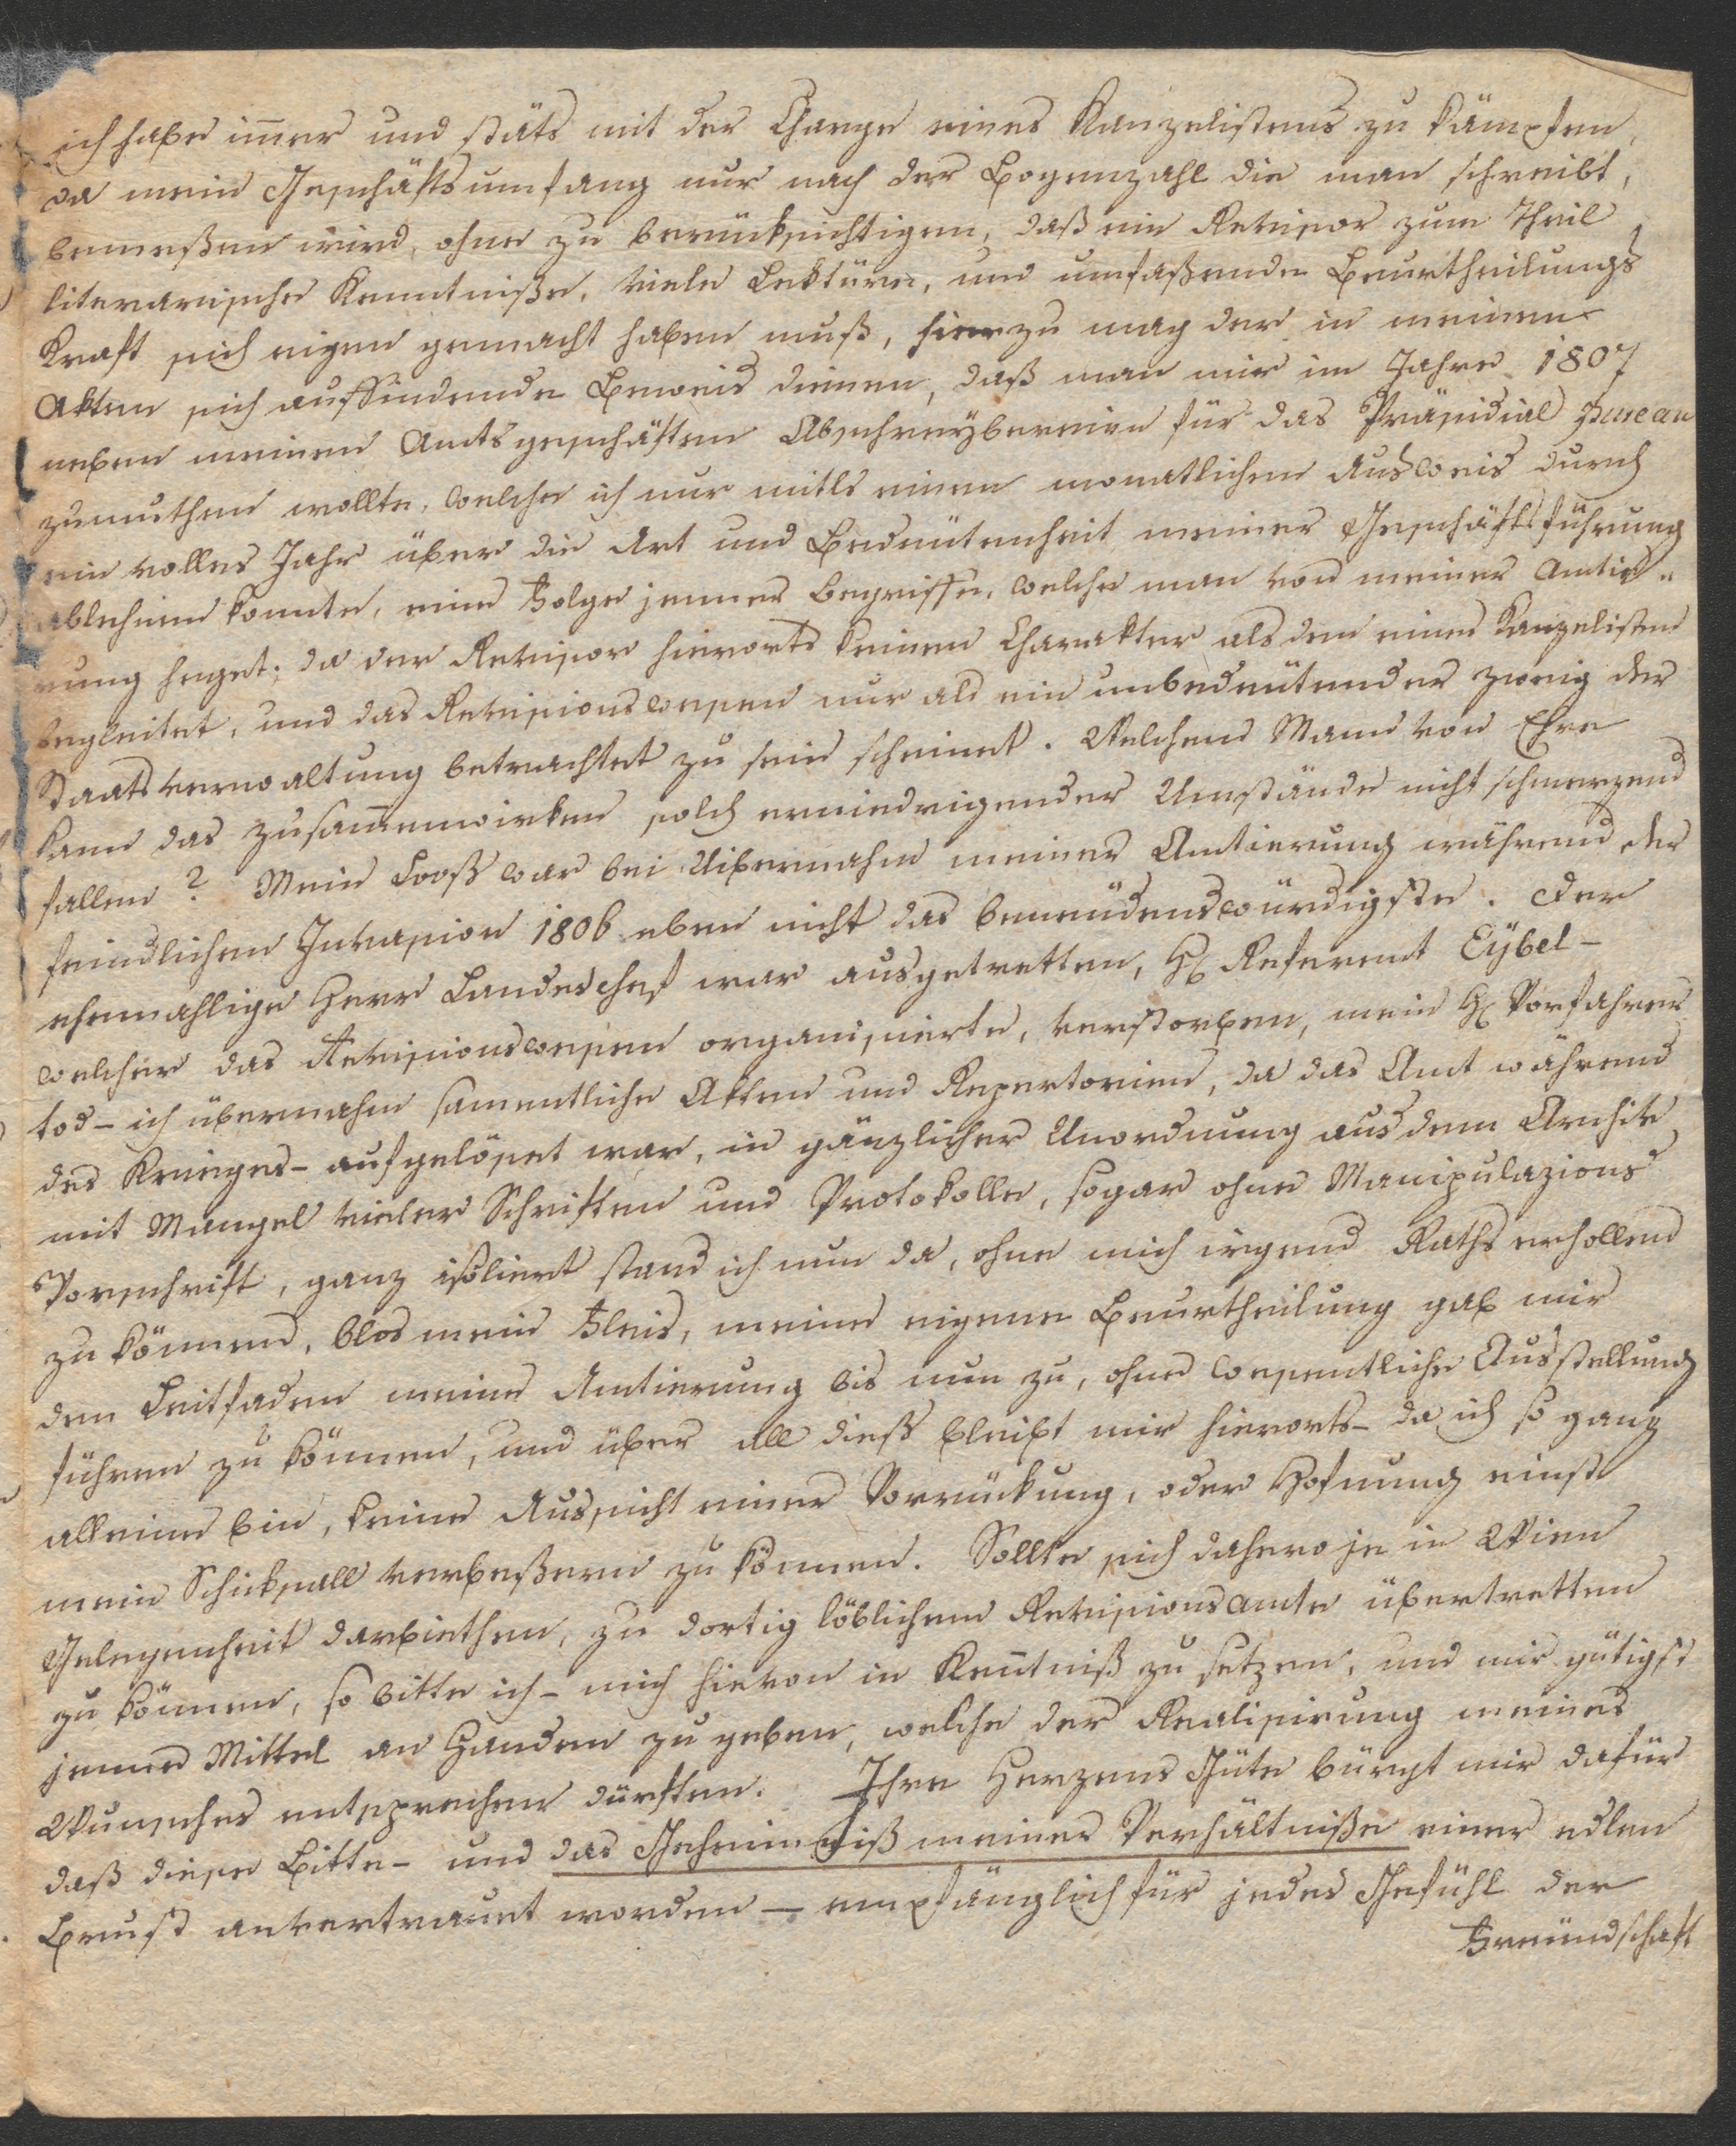 ich habe im̄er und stäts mit der Charge eines Kanzelistens zu kämpfen,
da mein Geschäftsumfang nur nach der Bogenzahl die man schreibt,
bemeßen wird, ohne zu berücksichtigen, daß ein Revisor zum Theil
literarische Kenntniße, viele Lektüre, und umfaßende Beurtheilungs
Kraft sich eigen gemacht haben muß, hierzu mag der in meinen
Akten sich auffindende Beweis dienen, daß man mir im Jahre 1807
neben meinen Amtsgeschäften Abschreybereien für das Präsidial Bureau
zumuthen wollte, welche ich nur mitls einen monatlichen Ausweis durch
ein volles Jahr über die Art und Bedeütenheit meiner Geschäftsführung
ablehnen konnte, eine Folge jenner Begriffe, welche man von meiner Amtie-
rung heget; da der Revisor hierorts keinen Charakter als den eines Kanzelisten
begleitet, und das Revisionswesen nur als ein unbedeütender Zweig der
Staatsverwaltung betrachtet zu sein scheinet. Welchem Mann von Ehre
kann das zusam̄enwirken solch erniedrigender Umstände nicht schmerzend
fallen? Mein Looß war bei Uibernahm meiner Amtierung während der
feindlichen Invasion 1806 eben nicht das beneidenswürdigste. Der
ehemahlige Herr Landeschef war ausgetretten, H Referent Eybel-
welcher das Revisionswesen organisierte, verstorben, mein H Vorfahrer
tod- ich übernahm samentliche Akten und Repertorien, da das Amt während
des Krieges- aufgelöset war, in gänzlicher Unordnung aus dem Archive
mit Mangel vieler Schriften und Protokolle, sogar ohne Manipulazions
Vorschrift, ganz isoliert stand ich nun da, ohne mich irgend Raths erhollen
zu können, blos mein Fleis, meine eigene Beurtheilung gab mir
den Leitfaden meine Amtierung bis nun zu, ohne wesentliche Ausstellung
führen zu können, und über all dieß bleibt mir hierorts- da ich so ganz
alleine bin, keine Aussicht einer Vorrückung, oder Hofnung einst
mein Schicksall verbeßern zu können. Sollte sich dahero je in Wien
Gelegenheit darbiethen, zu dortig löblichem Revisionsamte übertretten
zu können, so bitte ich- mich hievon in Ken̄tniß zu setzen, und mir gütigst
jenne Mittel an Handen zu geben, welche der Realisirung meines
Wunsches entsprechen dürften. Ihre Herzens Güte bürgt mir dafür
daß diese Bitte- und das Geheimniß meiner Verhältniße einer edlen
Brust anvertrauet worden — empfänglich für jedes Gefühl der
Freündschaft